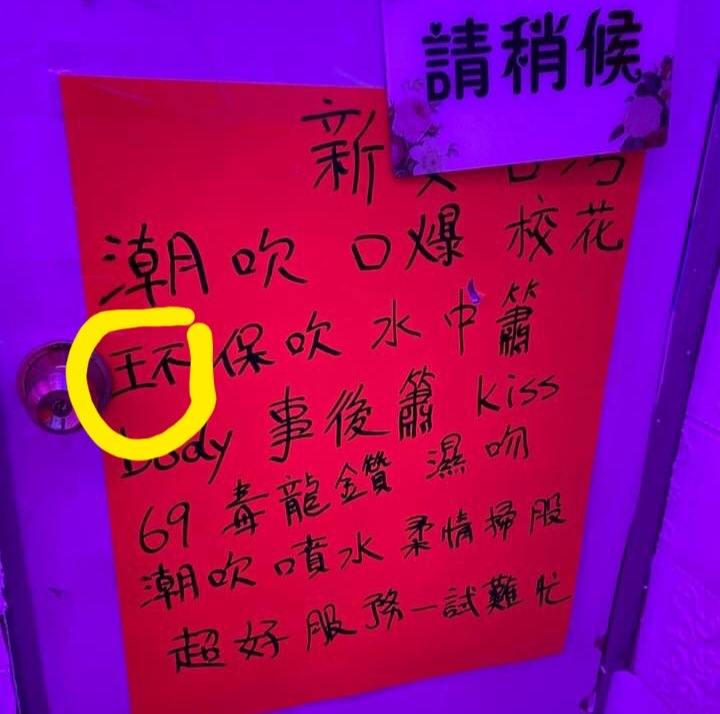 請稍候
新
潮吹 口爆 校花
环保吹 水中簫
body 事後簫 kiss
69 毒龍鑽 濕吻
潮吹噴水 柔情掃股
超好服務一試難忙